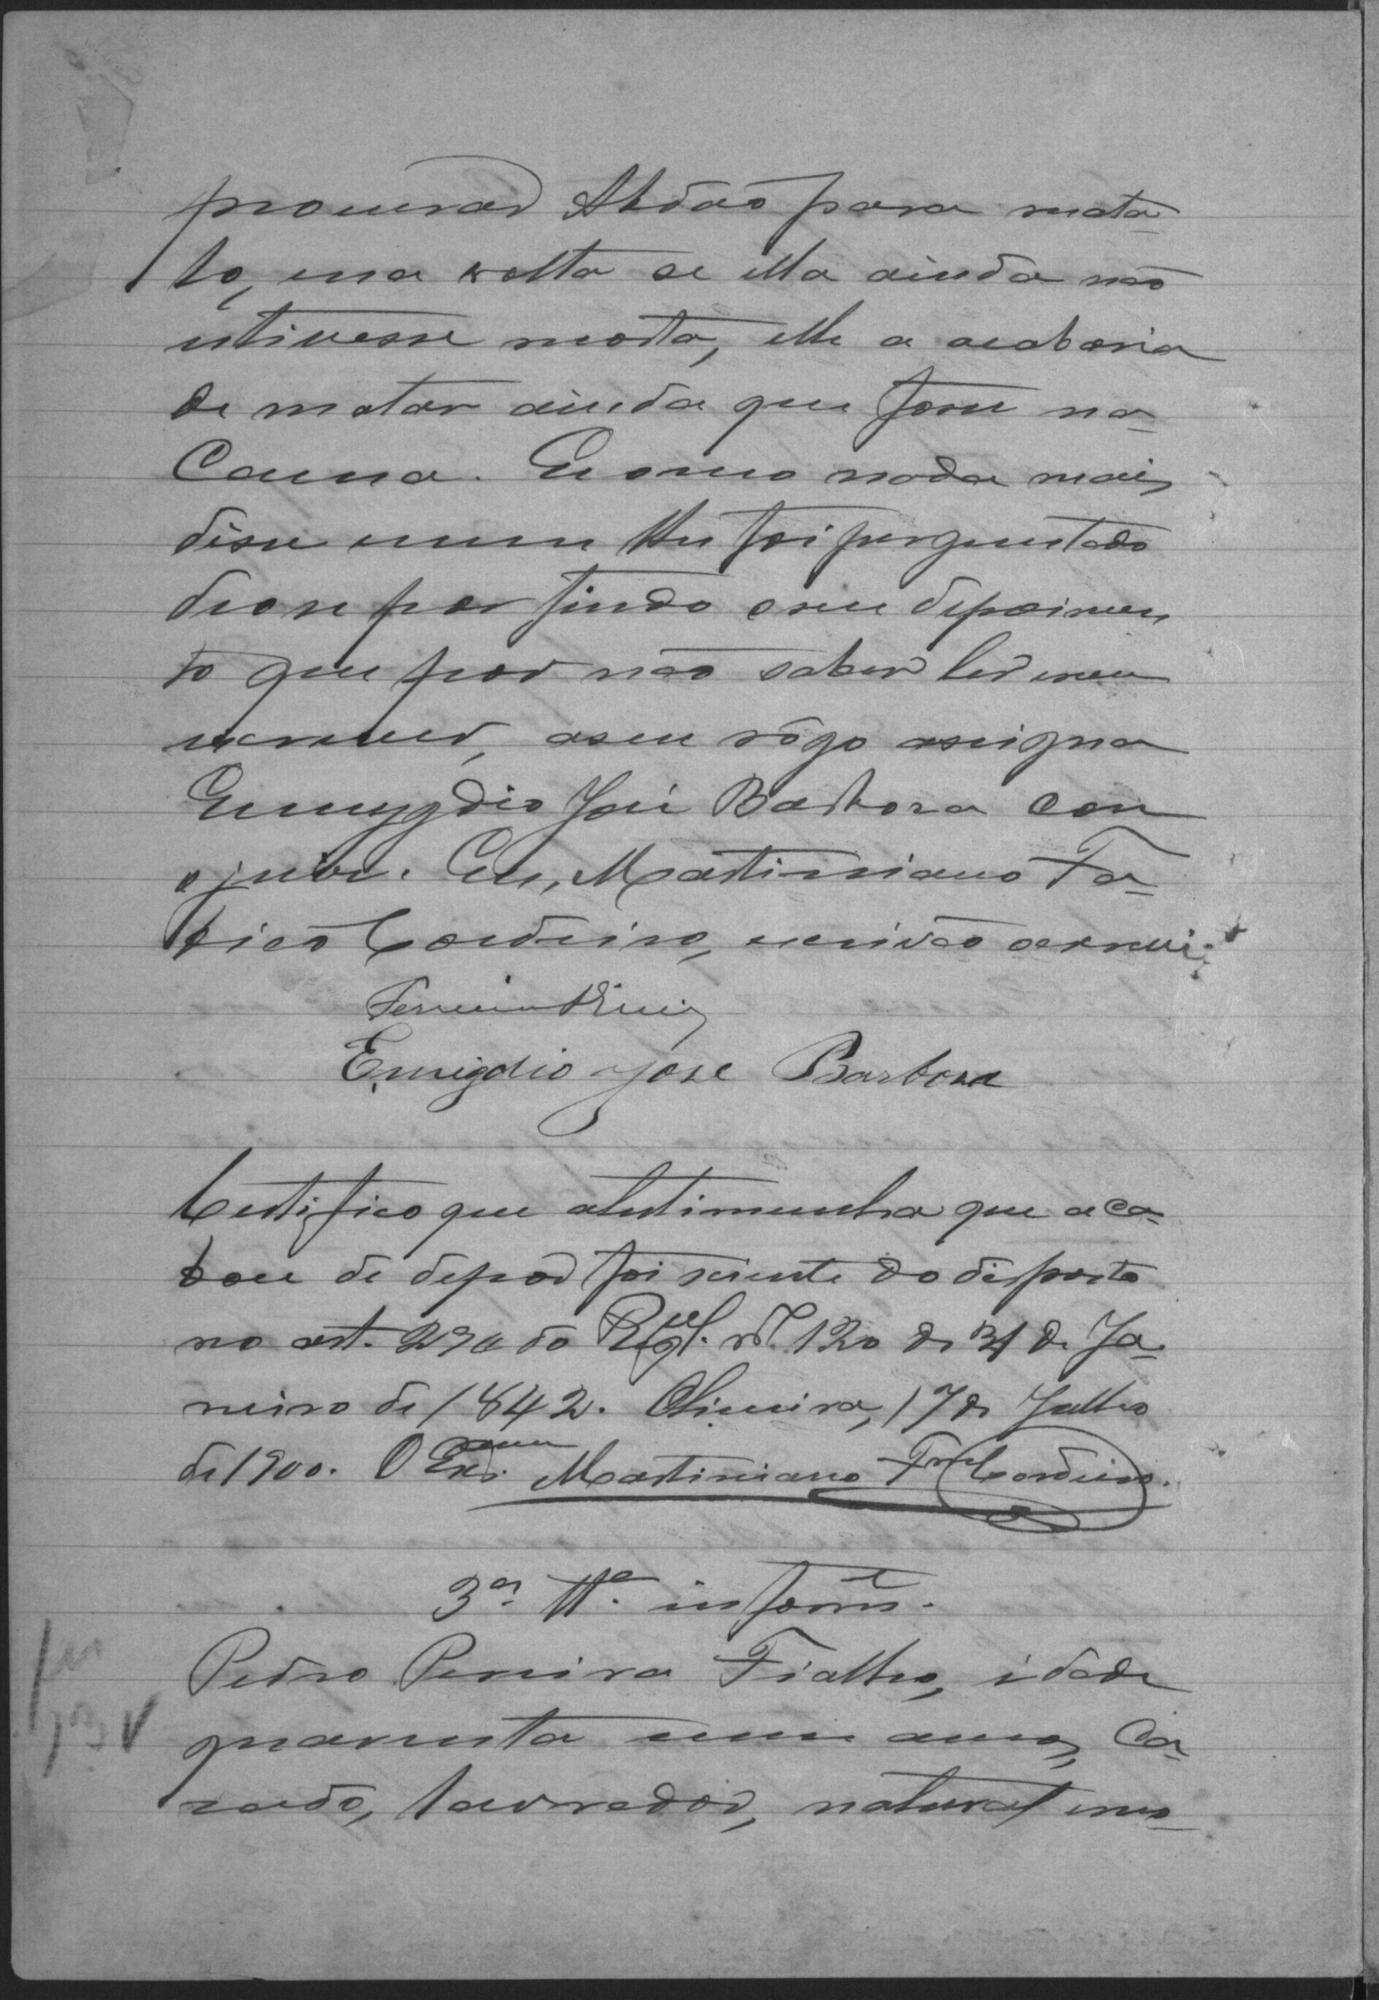 procurar Abdão para mata-
lo, e na volta se ella ainda não
estivesse morta, elle a acabaria
de matar ainda que fosse na
Cama. E como nada mais
disse e nem lhe foi perguntado
deo se por findo o seu depoimen
to que por não saber ler e nem
escrever, a seu rôgo assigna
Emmygdio José Barbosa com
o juiz. Eu, Martiniano Fa-
bicio Cordeiro, escrivão o escrevi.
Ferreira Diniz
Emigdio José Barbosa
Certifico que a testimunha que aca-
bou de depor foi sciente do disposto
no art. 294 do Regul. nº 120 de 31 de Ja-
neiro de 1842. Oliveira, 17 de Julho
de 1900. O Escr. Martiniano Fco Cordeiro.
3ª. Ttª. inform.e
Pedro Pereira Fialho, idade
quarenta e um annos, Ca-
sado, lavrador, natural e mo-